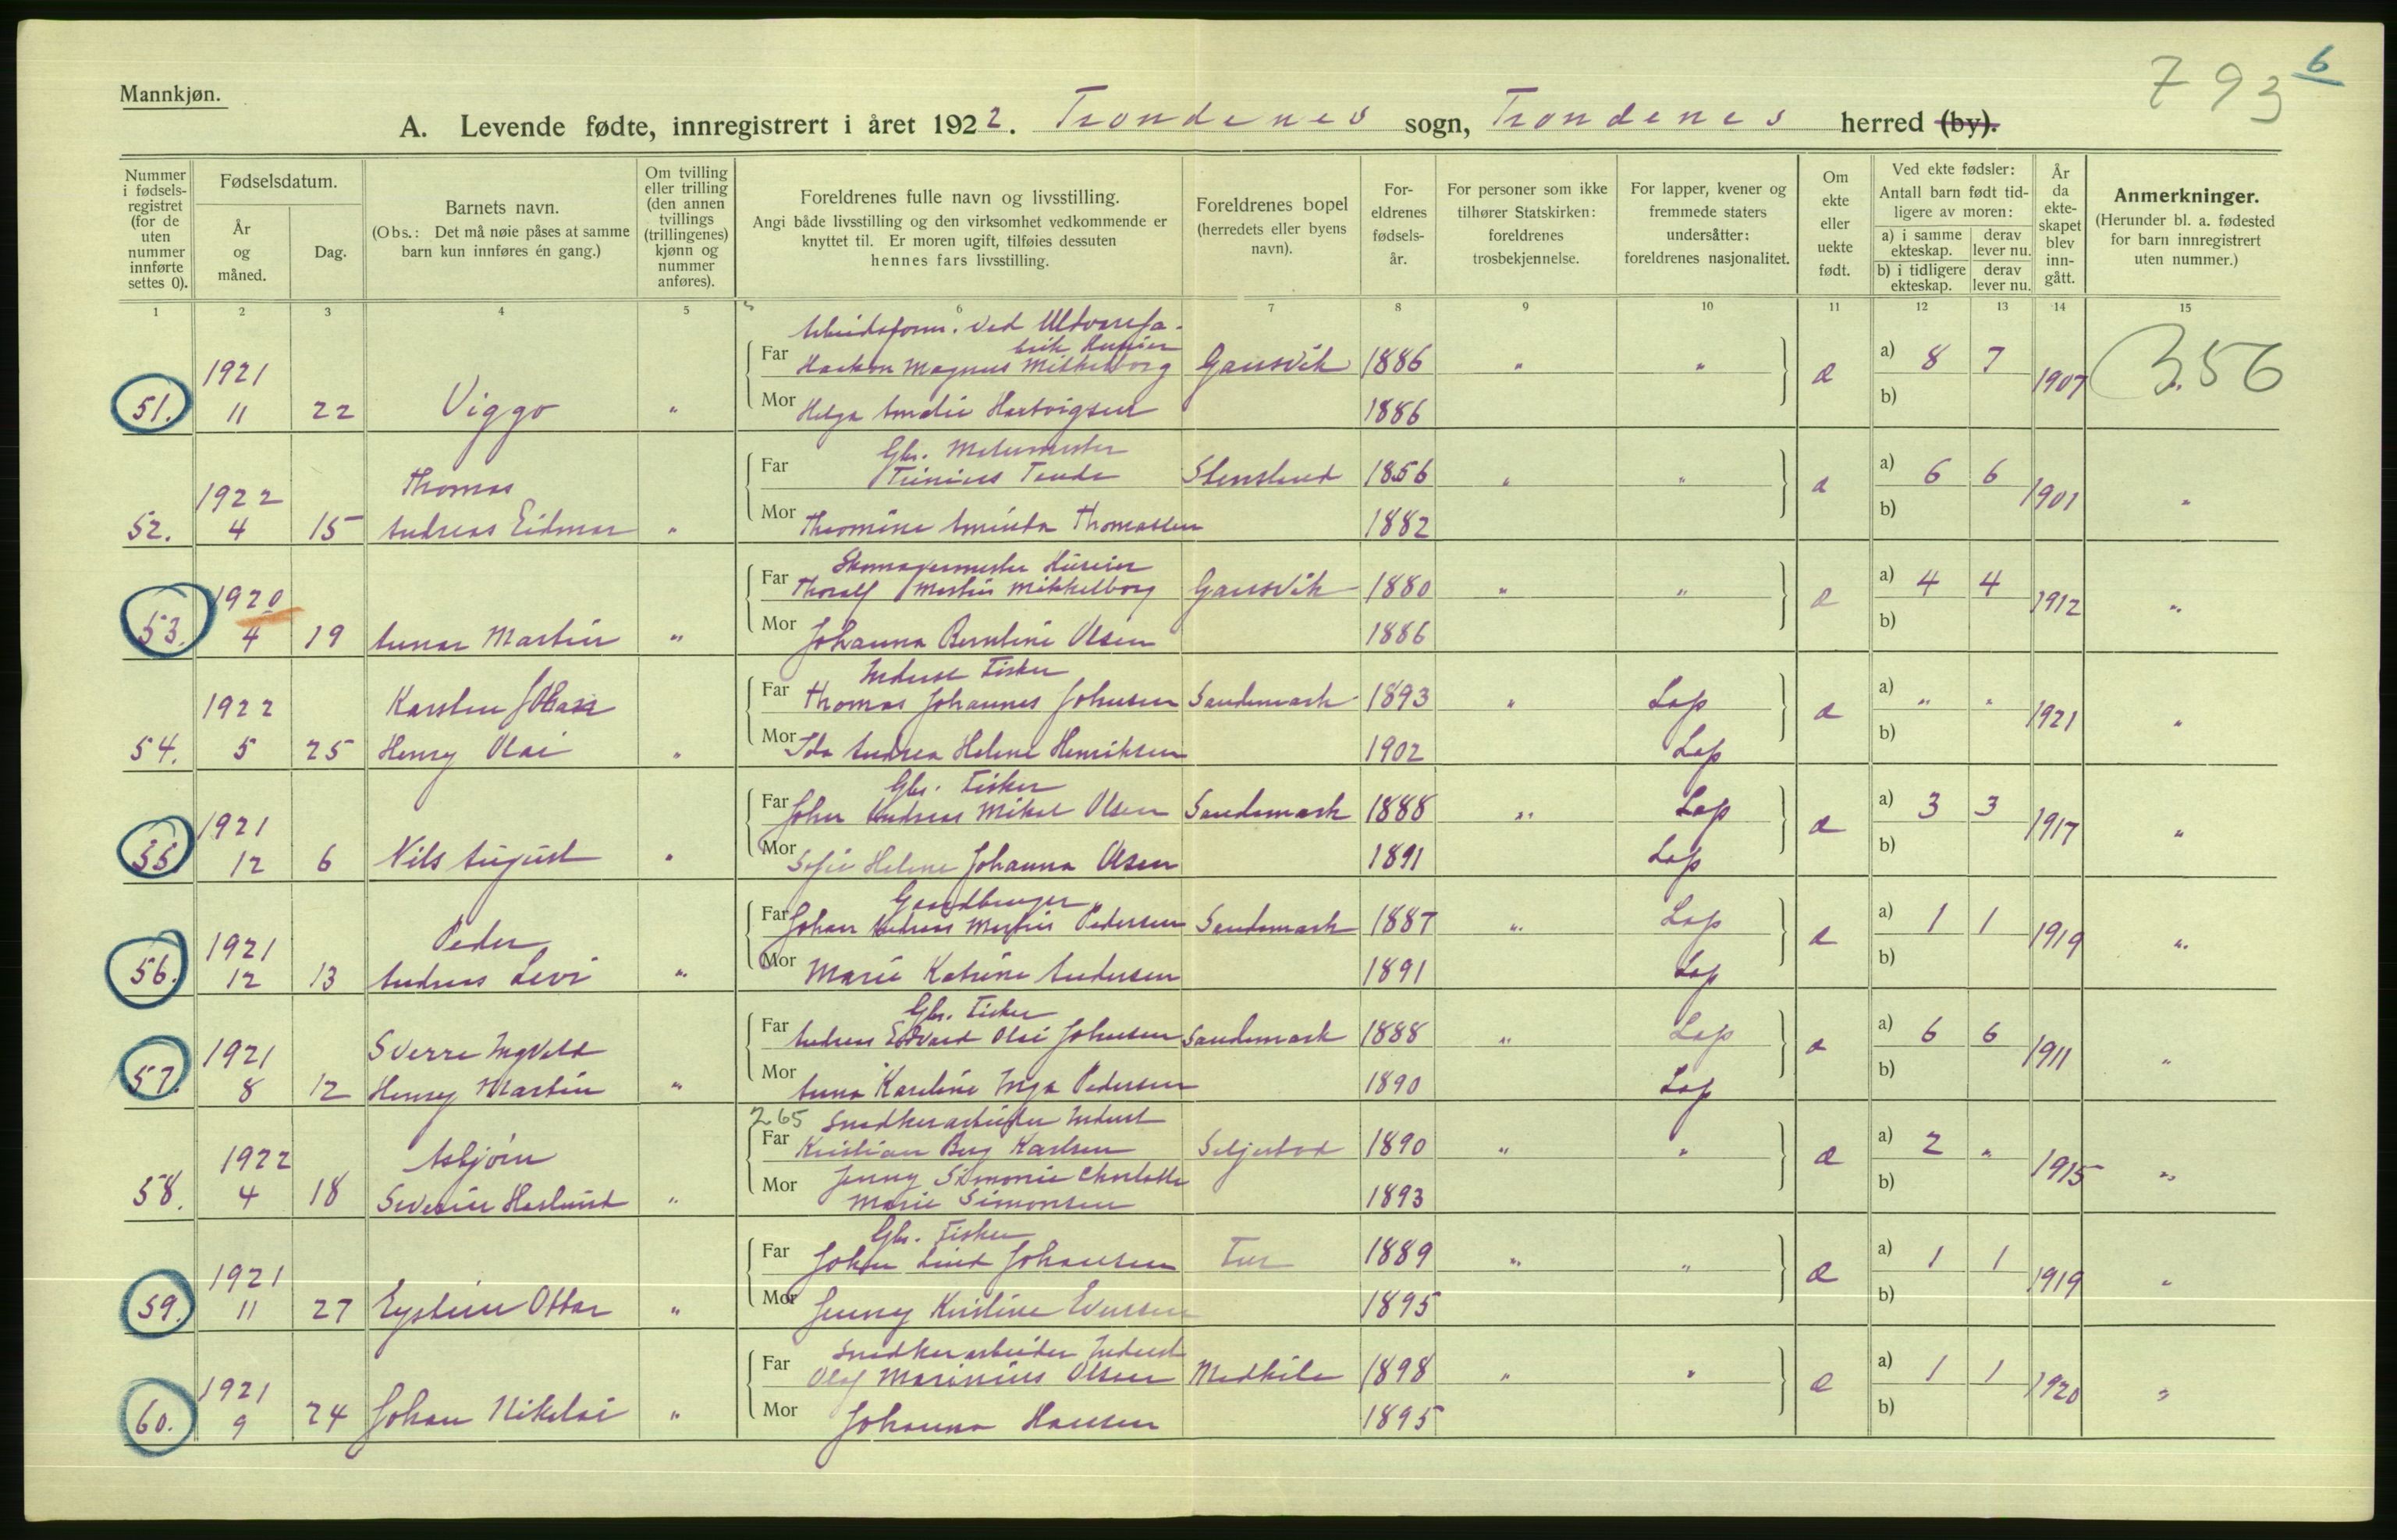 793 6
Mannkjøn.
A. Levende fødte, innregistrert i året 1922. Trondenes sogn, Trondenes herred (by).
Nummer i fødselsregistret (for de uten nummer innførte settes 0).
Fødselsdatum.
År og måned.
Dag.
Barnets navn.
(Obs.: Det må nøie påses at samme barn kun innføres én gang.)
Om tvilling eller trilling (den annen tvillings (trillingenes) kjønn og nummer anføres).
Foreldrenes fulle navn og livsstilling.
Angi både livsstilling og den virksomhet vedkommende er knyttet til. Er moren ugift, tilføies dessuten hennes fars livsstilling.
Foreldrenes bopel (herredets eller byens navn).
Foreldrenes fødselsår.
For personer som ikke tilhører Statskirken: foreldrenes trosbekjennelse.
For lapper, kvener og fremmede staters undersåtter: foreldrenes nasjonalitet.
Om ekte eller uekte født.
Ved ekte fødsler:
Antall barn født tidligere av moren:
a) i samme ekteskap. derav lever nu.
b) i tidligere ekteskap. derav lever nu.
År da ekteskapet blev inngått.
Anmerkninger.
(Herunder bl. a. fødested for barn innregistrert uten nummer.)
1 2 3 4 5 6 7 8 9 10 11 12 13 14 15
Arbeidsform. ved Uldvarefabrik Husier
1921 Far Haakon Magnus Mikkelborg Gausvik 1886 " " a) 8 7
51. 11 22 Viggo " Mor Helga Amalie Hartvigsen 1886 b) 1907 356
Gbr.
1922 Thomas Far Stensland 1856 " " a) 6 6
52. 4 15 Andreas Eidmar " Mor Thomassen 1882 b) 1901 "
Skomagermester Husier
1920 Far Thoralf Martin Mikkelborg Gausvik 1880 " " a) 4 4
53. 4 19 Martin " Mor Johanna Berntine Olsen 1886 b) 1912 "
Inderst Fisker
1922 Karsten Far Thomas Johannes Johnsen Sandemark 1893 " Lap a) " "
54. 5 25 Henry Olai " Mor Ida Andrea Helene Henriksen 1902 Lap b) 1921 "
Gbr. Fisker
1921 Far John Andreas Mikal Olsen Sandemark 1888 " Lap a) 3 3
55. 12 6 Nils August " Mor Sofie Helene Johanna Olsen 1891 Lap b) 1917 "
Gaardbruger
1921 Peder Far Johan Andreas Martin Pedersen Sandemark 1887 " Lap a) 1 1
56. 12 13 Andreas Levi " Mor Marie Katrine Andersen 1891 Lap b) 1919 "
Gbr. Fisker
1921 Sverre Ingvald Far Andreas Edvard Olai Johnsen Sandemark 1888 " Lap a) 6 6
57. 8 12 Henry Martin " Mor Anna Kareline Inga Pedersen 1890 Lap b) 1911 "
265 Snedkerarbeider Inderst
1922 Asbjørn Far Kristian Berg Karlsen Seljestad 1890 " " a) 2 "
58. 4 18 Severin Haslund " Mor Jenny Simonie Charlotte Marie Simonsen 1893 b) 1915 "
Gbr. Fisker
1921 Far Johan Johansen 1889 " " a) 1 1
59. 11 27 Eystein Ottar " Mor Jenny Kristine 1895 b) 1919 "
Snedkerarbeider Inderst
1921 Far Olaf Marinius Olsen Medkila 1898 " " a) 1 1
60. 9 24 Johan Nikolai " Mor Johanna Hansen 1895 b) 1920 "